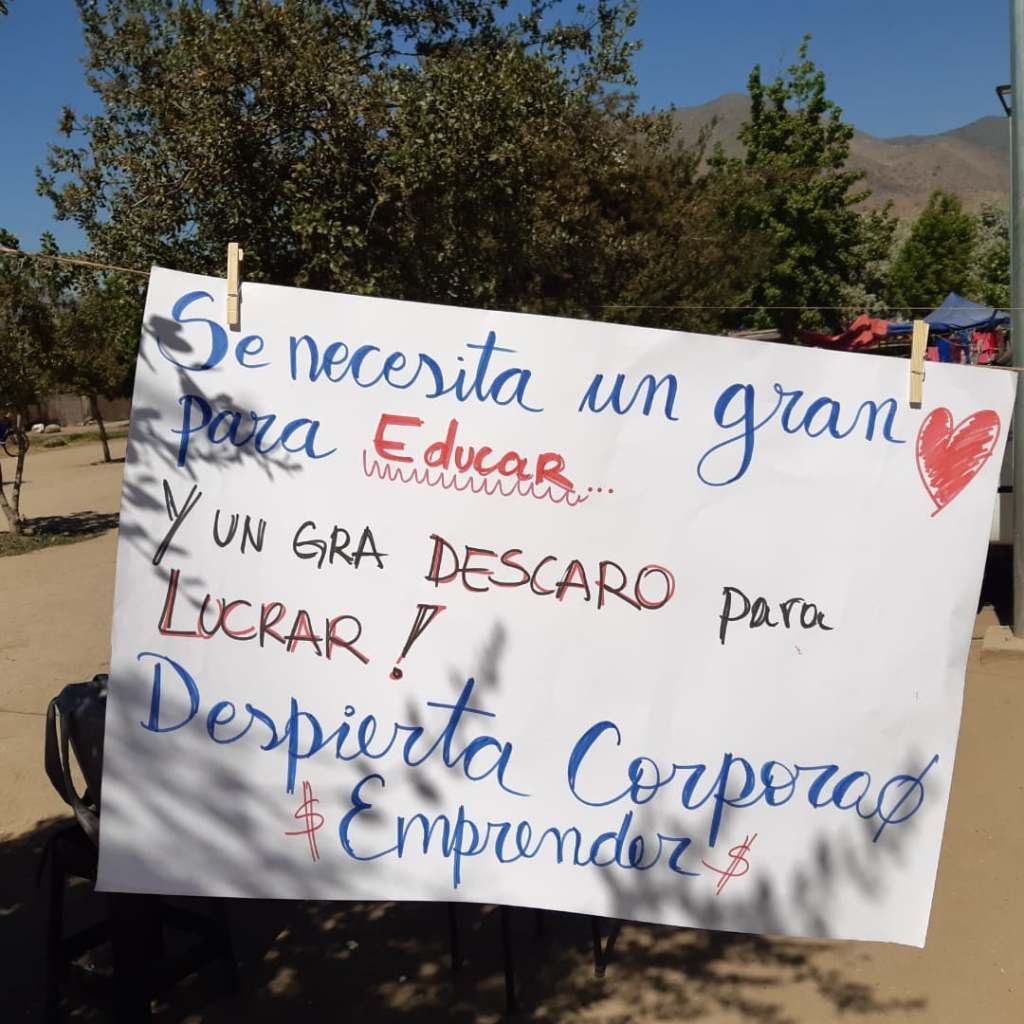 Se necesita un gran
para Educar...
Y UN GRA DESCARO para
LUCRAR!
Despierta Corporaø
$ Emprender $